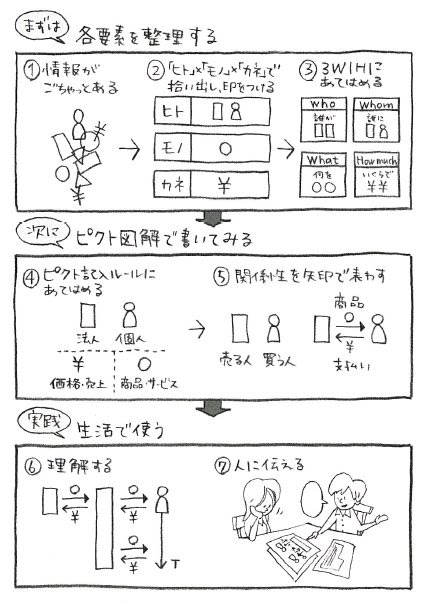 まずは 各要素を整理する
①情報が
ごちゃっとある
②「ヒト」×「モノ」×「カネ」で
拾い出し、印をつける
ヒト
モノ
カネ ¥
③3W1Hに
あてはめる
Who
誰が
Whom
誰に
What
何を
How much
いくらで
¥¥
¥
次に ピクト図解で書いてみる
④ピクト記入ルールに
あてはめる
法人 個人
¥
価格・売上 商品・サービス
⑤関係性を矢印で表わす
売る人 買う人
商品
¥
支払い
実践 生活で使う
⑥理解する
¥ ¥
¥ T
⑦人に伝える